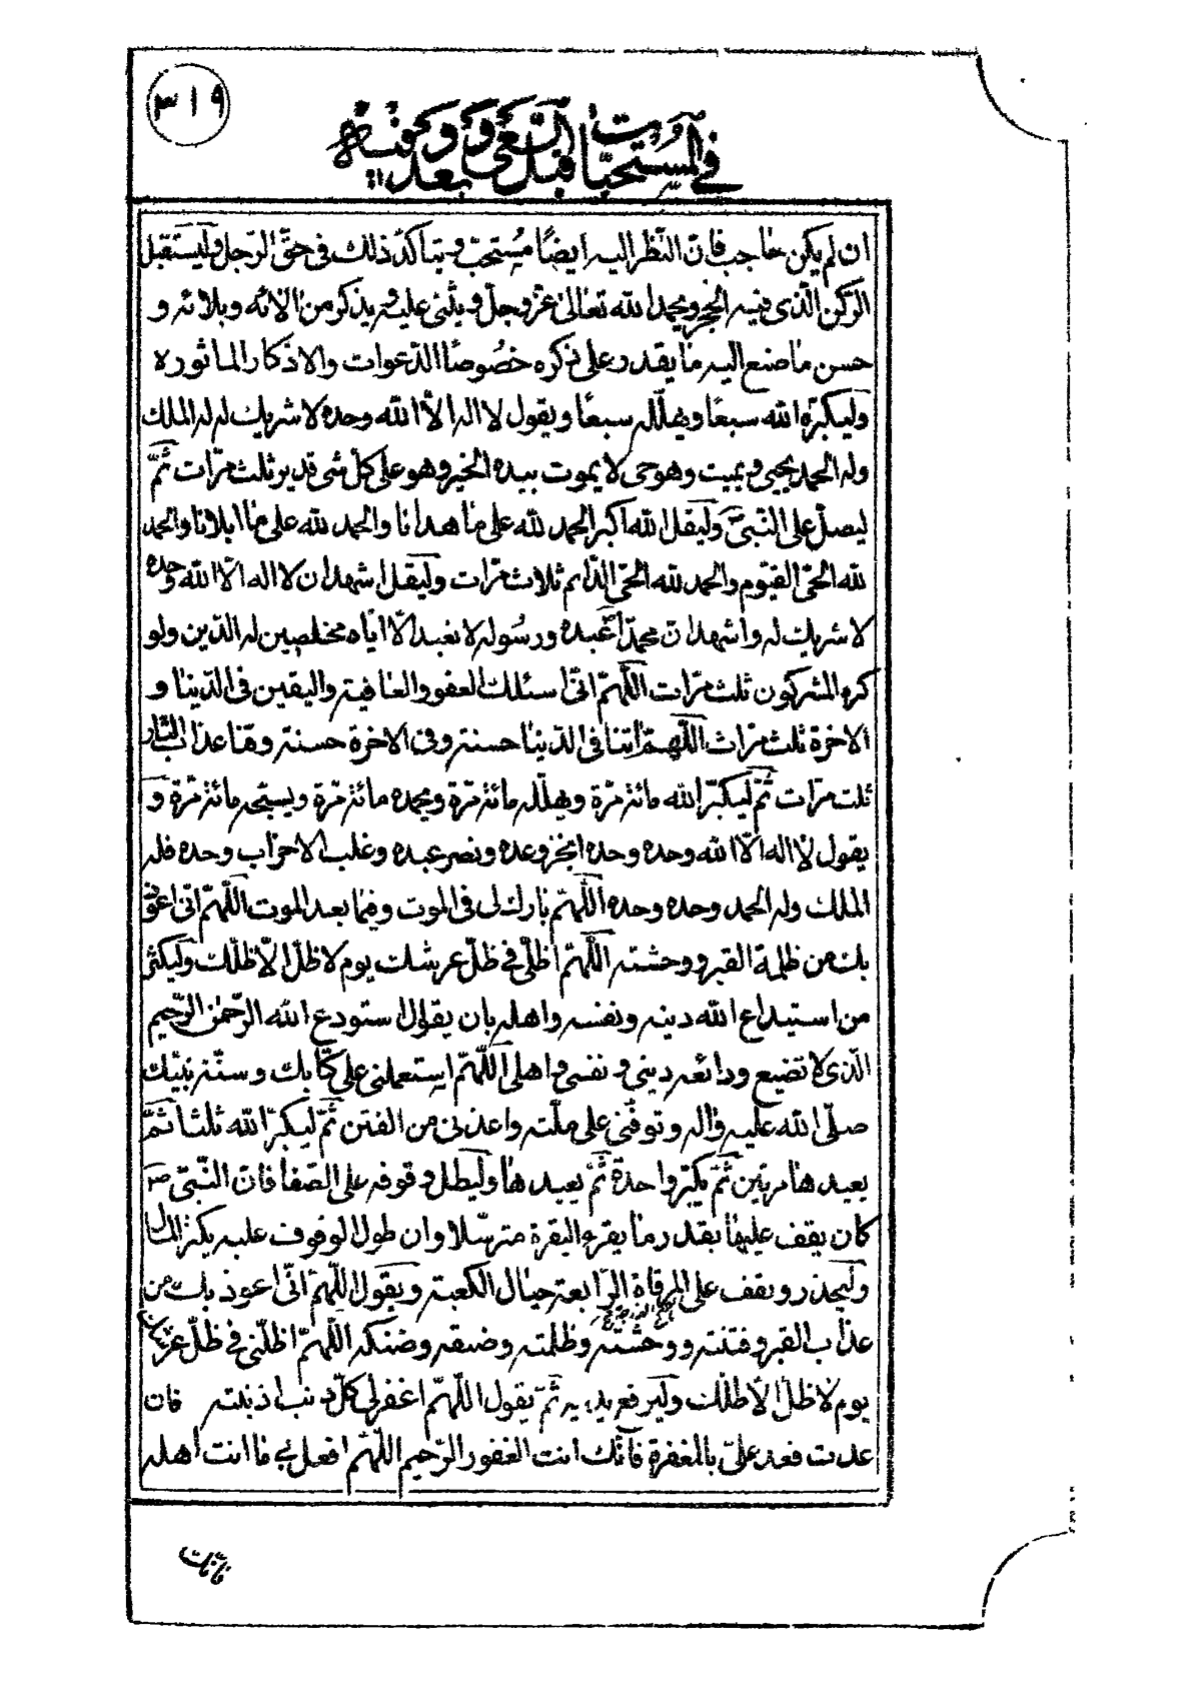 ٣١٩
في المستحبات قبل السعي و بعده و كيفيته
ان لم يكن حاجب فان النظر اليه ايضًا مُستحبّ و يتاكّد ذلك فى حقّ الرّجل وليستقبل
الرّكن الّذى فيه الحجر ويحمد الله تعالى عزّ وجلّ ويثنى عليه ويذكر من الائه وبلائه و
حسن ما صنع اليه ما يقدر على ذكره خصُوصًا الدّعوات والاذكار الماثوره
وليكبّر الله سبعًا ويهلّله سبعًا ويقول لا اله الّا الله وحده لا شريك له له الملك
وله الحمد يحيى ويميت وهو حى لا يموت بيده الخير وهو على كلّ شى قدير ثلث مرّات ثمّ
ليصلّ على النّبىّ وليقل الله اكبر الحمد لله على ما هدانا والحمد لله على ما ابلانا والحمد
لله الحىّ القيّوم والحمد لله الحىّ الدّائم ثلاث مرّات وليقل اشهد ان لا اله الّا الله وحده
لا شريك له واشهد ان محمّدا عبده ورسُوله لا نعبد الّا ايّاه مخلصين له الدّين ولو
كره المشركون ثلث مرّات اللّهمّ انّى اسئلك العفو والعافية واليقين فى الدّنيا و
الاخرة ثلث مرّات اللّهمّ اتنا فى الدّنيا حسنة وفى الاخرة حسنة وقنا عذاب النّار
ثلث مرّات ثمّ ليكبّر الله مائة مرّة ويهلّله مائة مرّة ويحمده مائة مرّة ويسبّحه مائة مرّة و
يقول لا اله الّا الله وحده وحده انجز وعده ونصر عبده وغلب الاحزاب وحده فله
الملك وله الحمد وحده وحده اللّهمّ بارك لى فى الموت وفيما بعد الموت اللّهمّ انّى اعوذ
بك من ظلمة القبر ووحشته اللّهمّ اظلّنى فى ظلّ عرشك يوم لا ظلّ الّا ظلّك وليكثر
من استيداع الله دينه ونفسه واهله بان يقول استودع الله الرّحمن الرّحيم
الّذى لا تضيع ودائعه دينى ونفسى واهلى اللّهمّ استعملنى على كتابك وسنّة نبيّك
صلّى الله عليه واله وتوفّنى على ملّته واعذنى من الفتن ثمّ ليكبّر الله ثلثا ثمّ
يعيدها مرّتين ثمّ يكبّر واحدة ثمّ يعيدها وليطل وقوفه على الصّفا فان النّبىّ ص
كان يقف عليها بقدر ما يقرء البقرة مترسّلا وان طول الوقوف عليه يكثر المال
وليحذر ويقف على المرقاة الرّابعة حيال الكعبة ويقول اللّهمّ انّى اعوذ بك من
عذاب القبر وفتنته ووحشته وظلمته وضيقه وضنكه اللّهمّ اظلّنى فى ظلّ عرشك
يوم لا ظلّ الّا ظلّك وليرفع يديه ثمّ يقول اللّهمّ اغفر لى كلّ ذنب اذنبته فان
عدت فعد علىّ بالمغفرة فانّك انت الغفور الرّحيم اللّهمّ افعل بى ما انت اهله
فانّك